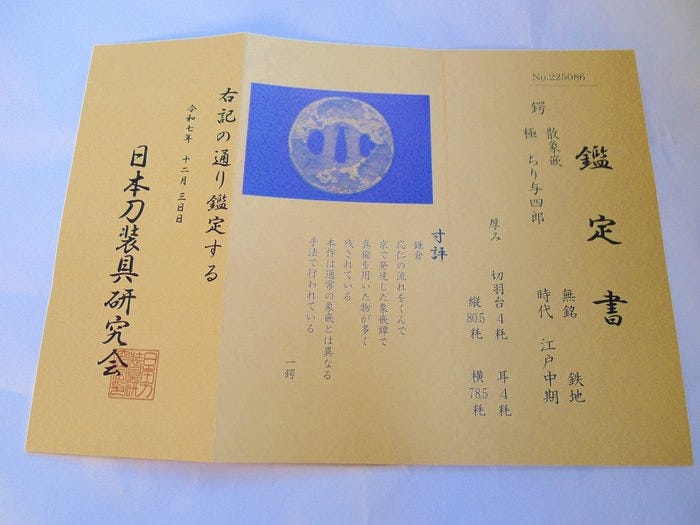 No.225086
鑑定書
鍔
散象嵌 無銘 鉄地
極 ちり与四郎 時代 江戸中期
厚み 切羽台4粍 耳4粍
縦80.5粍 横78.5粍
寸評
鎌倉
応仁の流れをくんで
京で発達した象嵌鐔で
真鍮を用いた物が多く
残されている
本作は通常の象嵌とは異なる
手法で行われている
一鍔
右記の通り鑑定する
令和七年 十二月 三日日
日本刀装具研究会